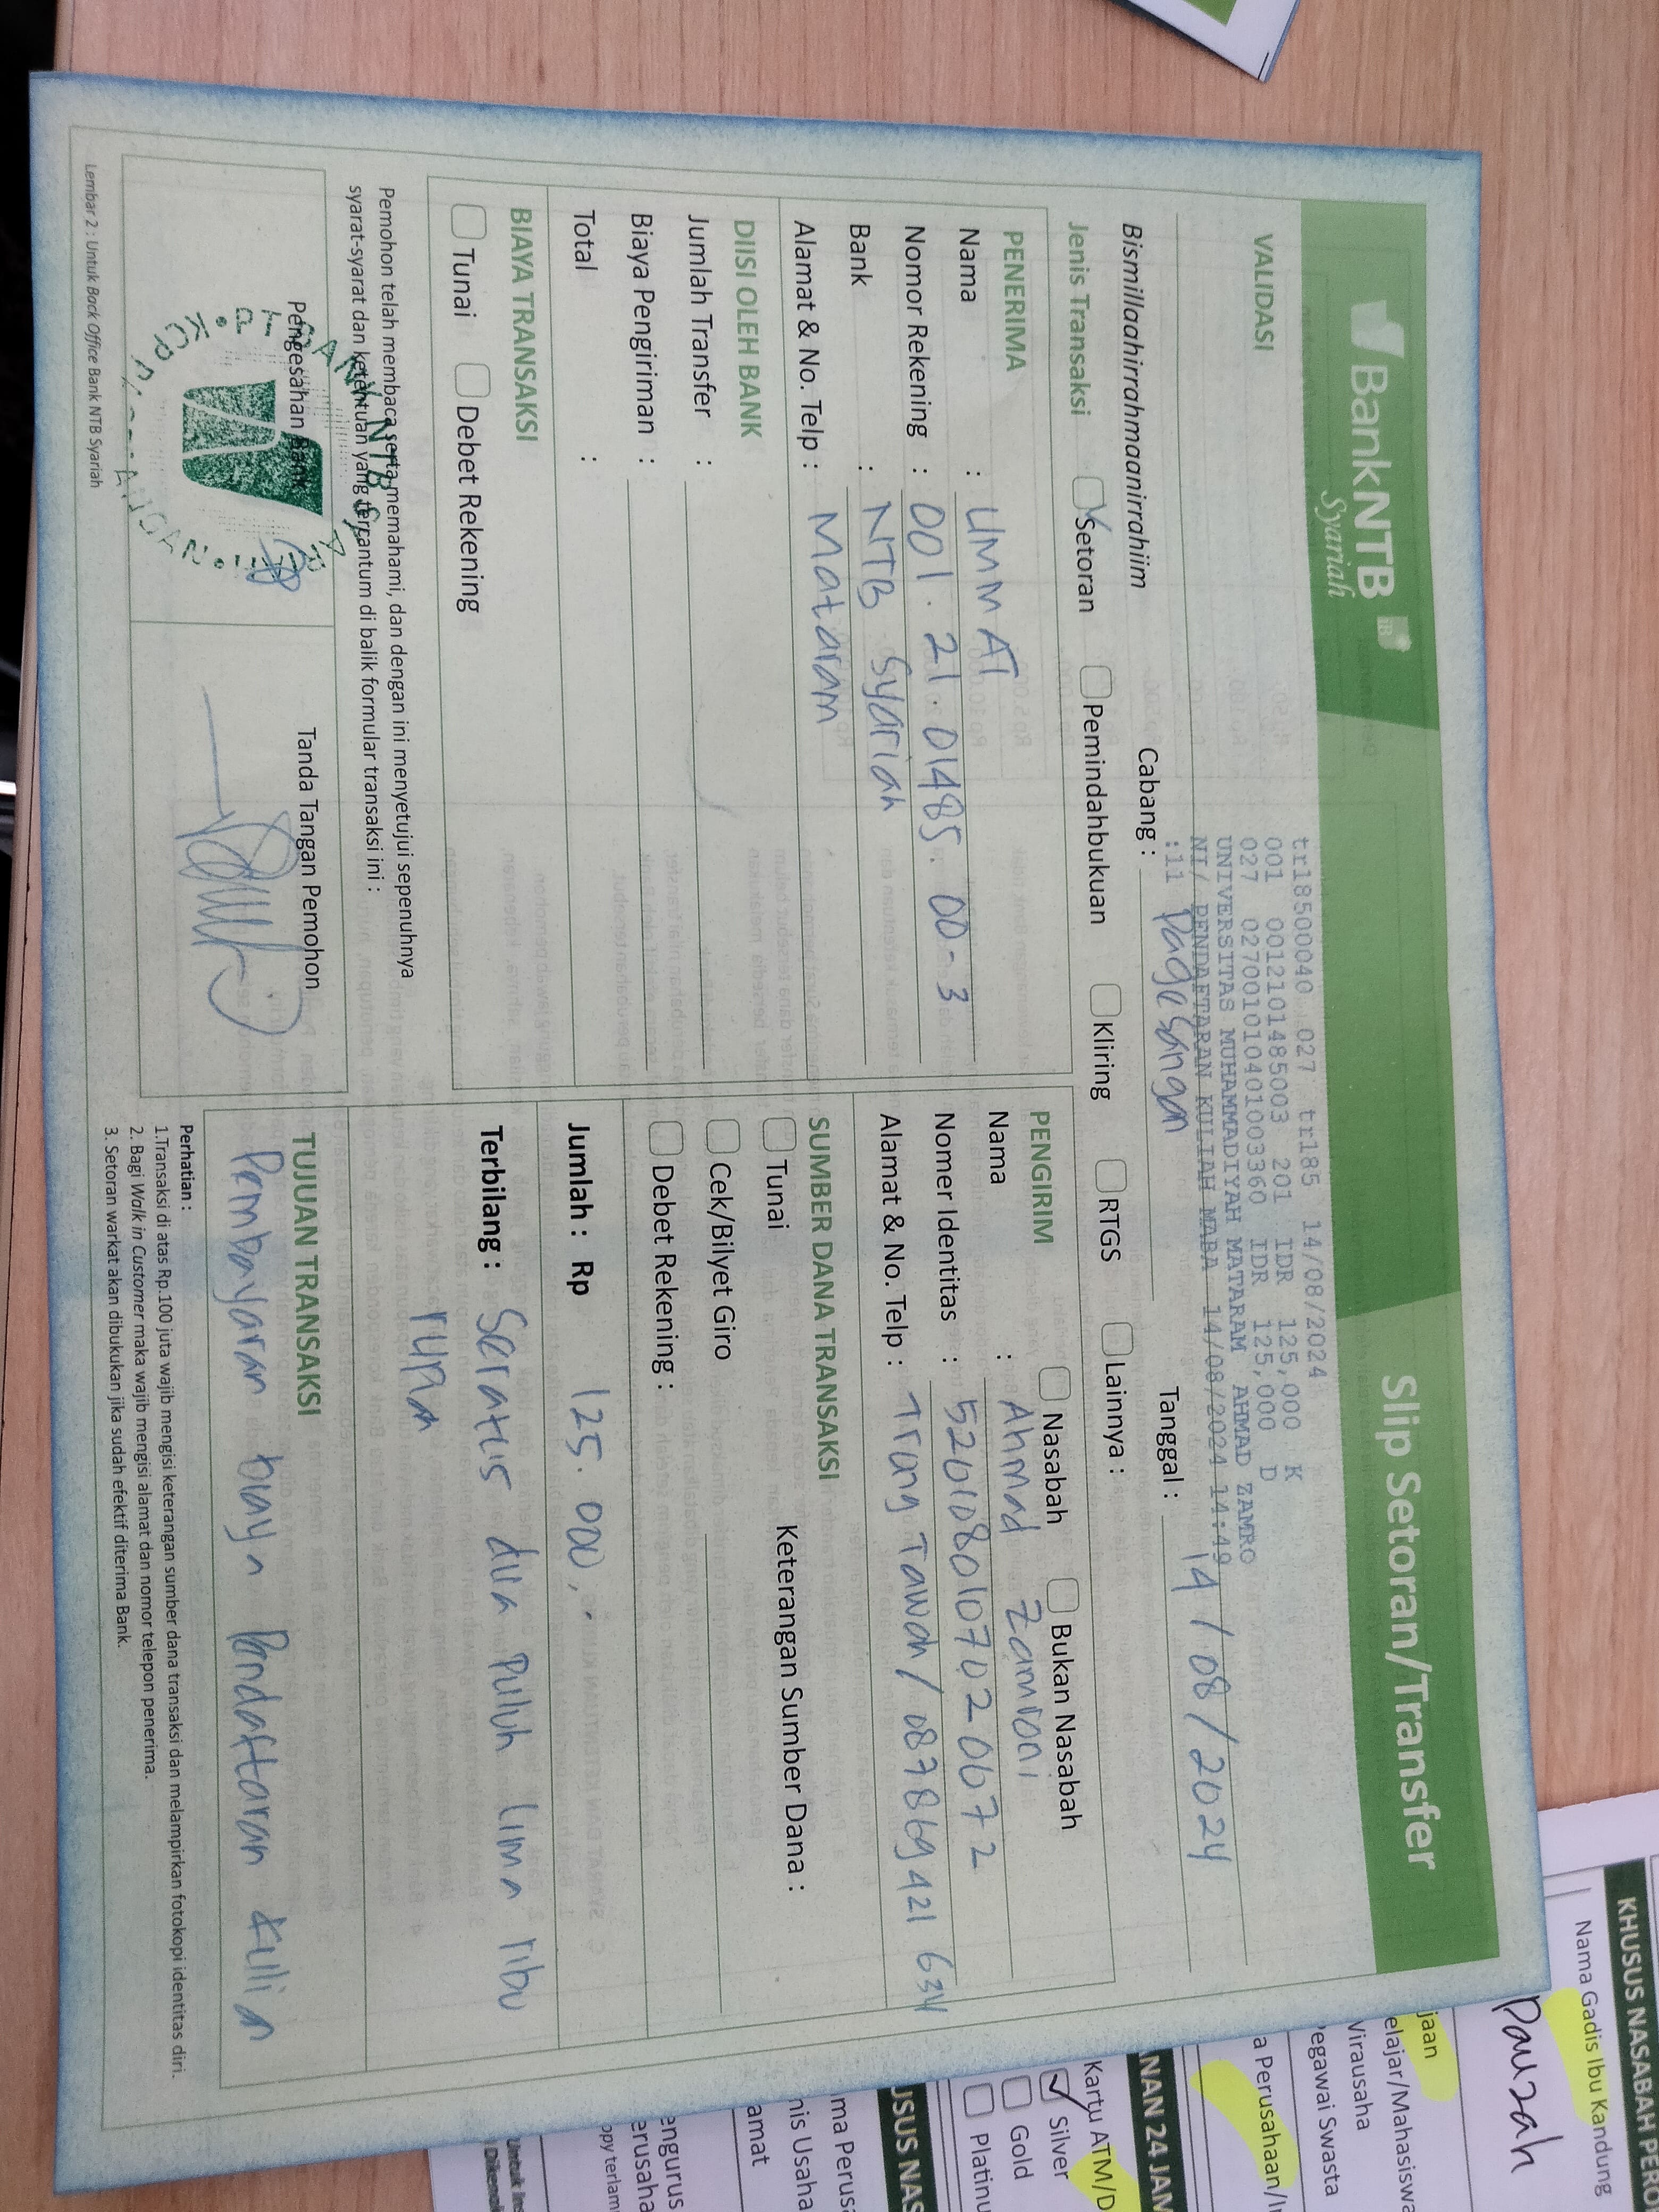 BankNTB
Syariah
Slip Setoran/Transfer
VALIDASI
tr18500040 027 tr185 14/08/2024
001 0012101485003 201 IDR 125,000 K
027 0270010104010033​60 IDR 125,000 D
UNIVERSITAS MUHAMMADIYAH MATARAM AHMAD ZAMRO
NI/ PENDAFTARAN KULIAH MABA 14/08/2024 14:49
:11
Bismillaahirrahmaanirrahiim
Cabang : Pagesangan
Tanggal : 14 / 08 / 2024
Jenis Transaksi Setoran Pemindahbukuan Kliring RTGS Lainnya :
PENERIMA
Nama : UMMAT
Nomor Rekening : 001. 21. 01485. 00-3
Bank : NTB Syariah
Alamat & No. Telp : Mataram
PENGIRIM Nasabah Bukan Nasabah
Nama : Ahmad Zamroni
Nomer Identitas : 5201080107020672
Alamat & No. Telp : Trung Tawah / 087869421634
DIISI OLEH BANK
Jumlah Transfer :
Biaya Pengiriman :
Total :
SUMBER DANA TRANSAKSI
Tunai Keterangan Sumber Dana :
Cek/Bilyet Giro
Debet Rekening :
BIAYA TRANSAKSI
Tunai Debet Rekening
Jumlah : Rp 125.000,-
Terbilang : Seratus dua Puluh lima ribu
rupia
Pemohon telah membaca serta memahami, dan dengan ini menyetujui sepenuhnya
syarat-syarat dan ketentuan yang tercantum di balik formular transaksi ini :
Pengesahan Bank
Tanda Tangan Pemohon
TUJUAN TRANSAKSI
Pembayaran biaya Pendaftaran Kulia
Perhatian :
1.Transaksi di atas Rp.100 juta wajib mengisi keterangan sumber dana transaksi dan melampirkan fotokopi identitas diri.
2. Bagi Walk in Customer maka wajib mengisi alamat dan nomor telepon penerima.
3. Setoran warkat akan dibukukan jika sudah efektif diterima Bank.
Lembar 2 : Untuk Back Office Bank NTB Syariah
KHUSUS NASABAH PERO
Nama Gadis Ibu Kandung
Pauzah
jaan
elajar/Mahasiswa
Virausaha
egawai Swasta
a Perusahaan/I
NAN 24 JAM
Kartu ATM/D
Silver
Gold
Platinu
USUS NAS
ma Perusa
nis Usaha
amat
engurus
erusaha